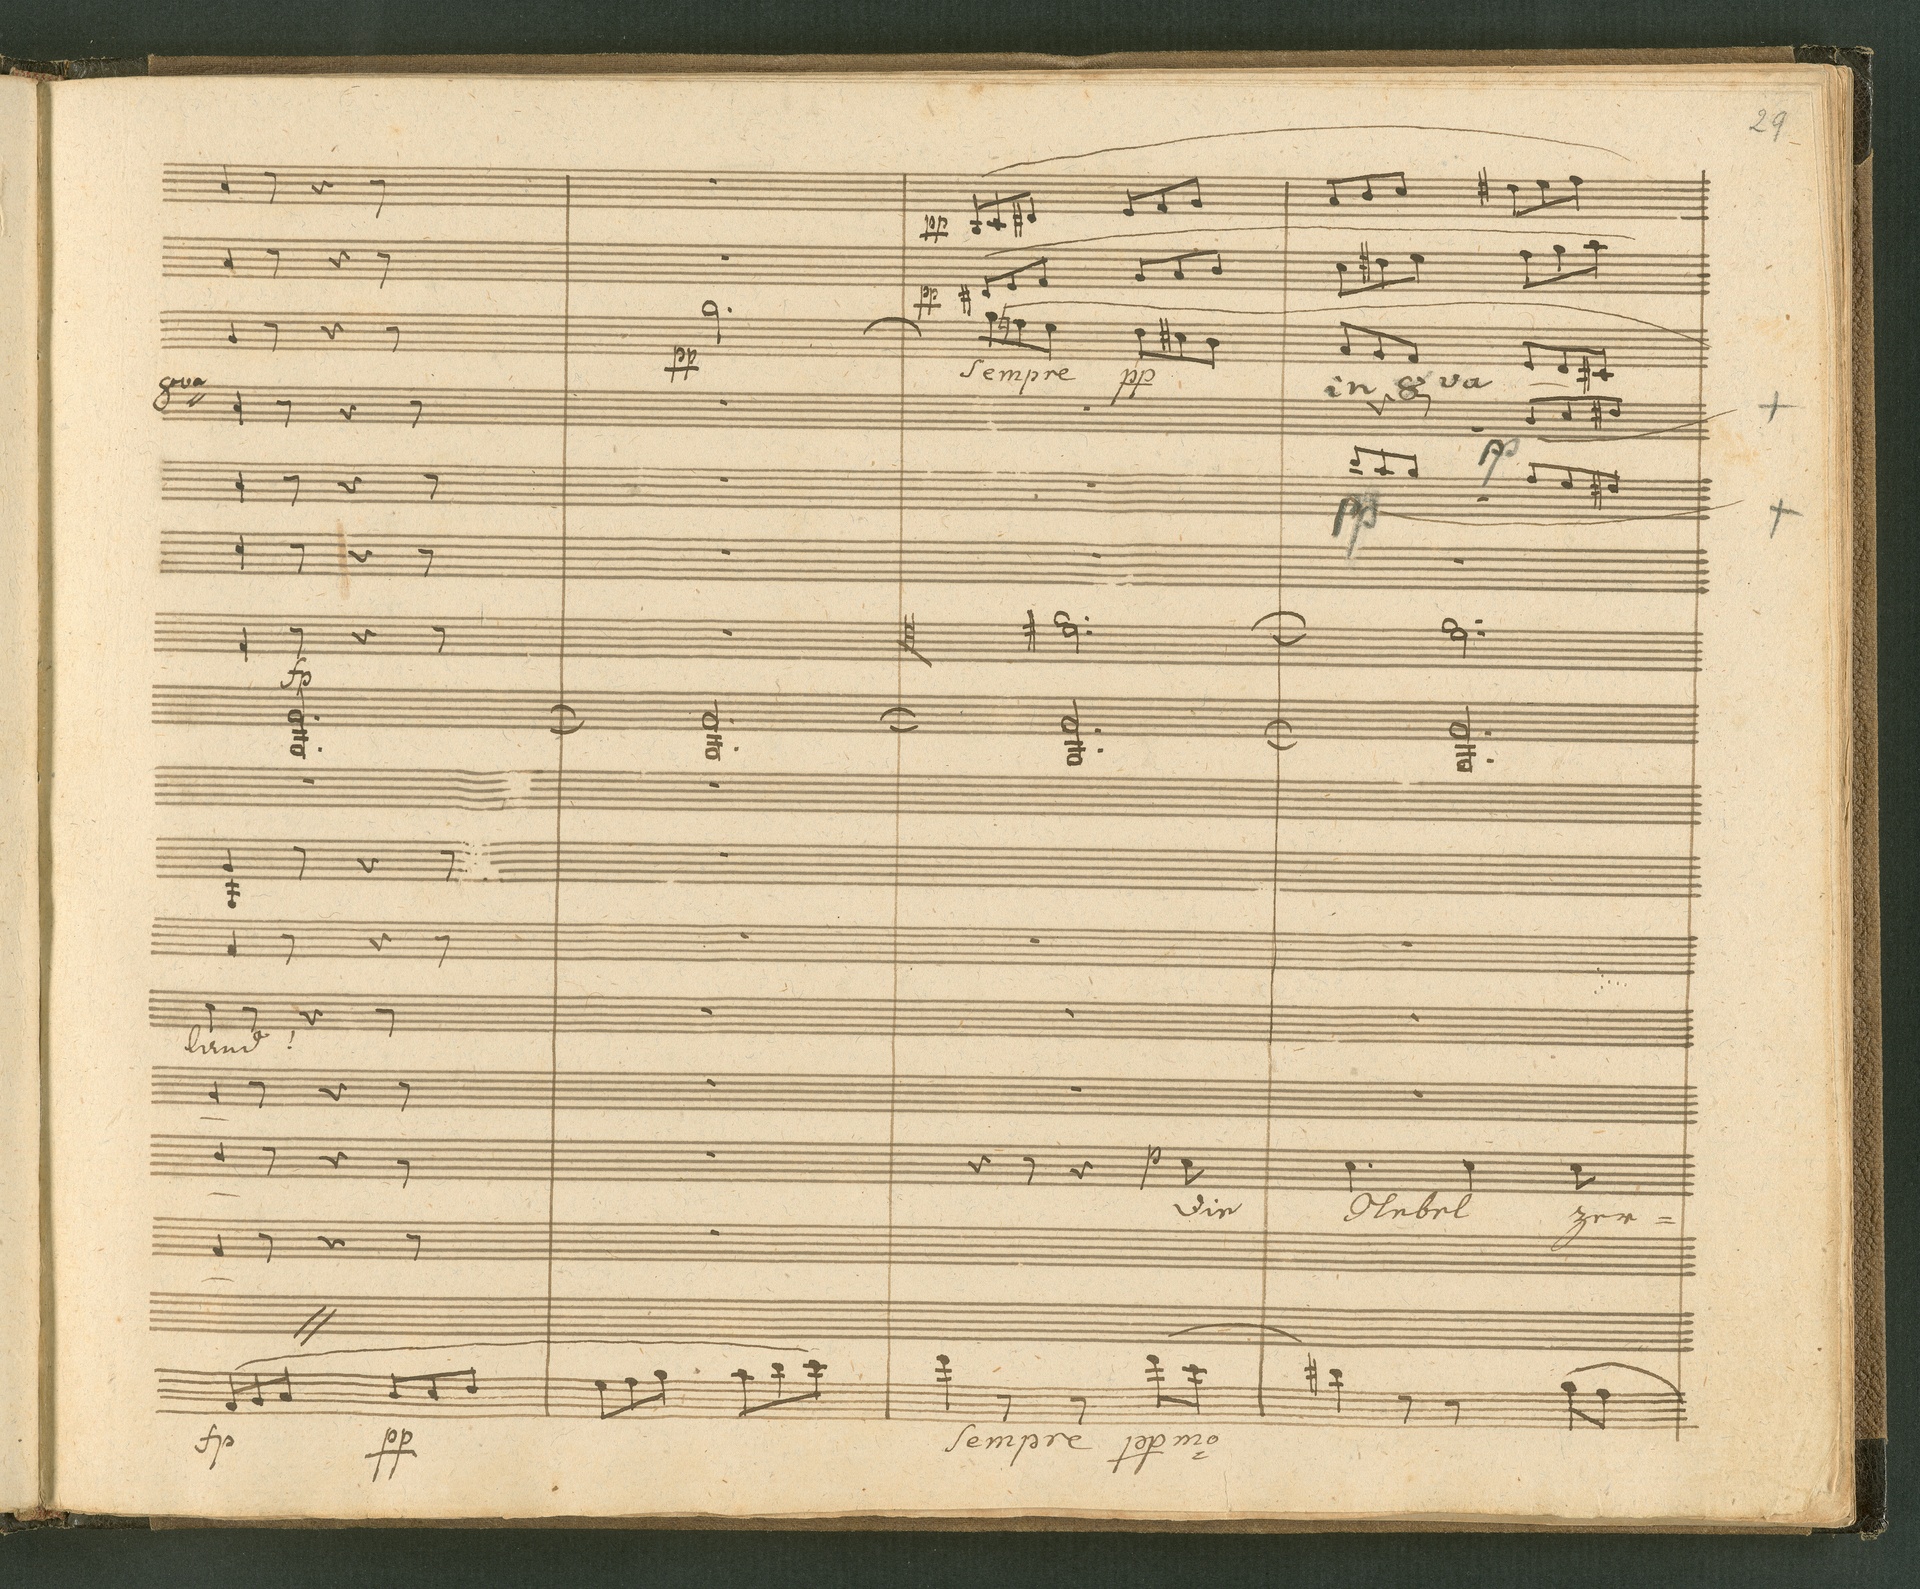 29
pp
pp
pp
sempre pp
in 8va
8va
pp
pp
fp
land!
p
Die Nebel zer=
fp pp
sempre ppmo